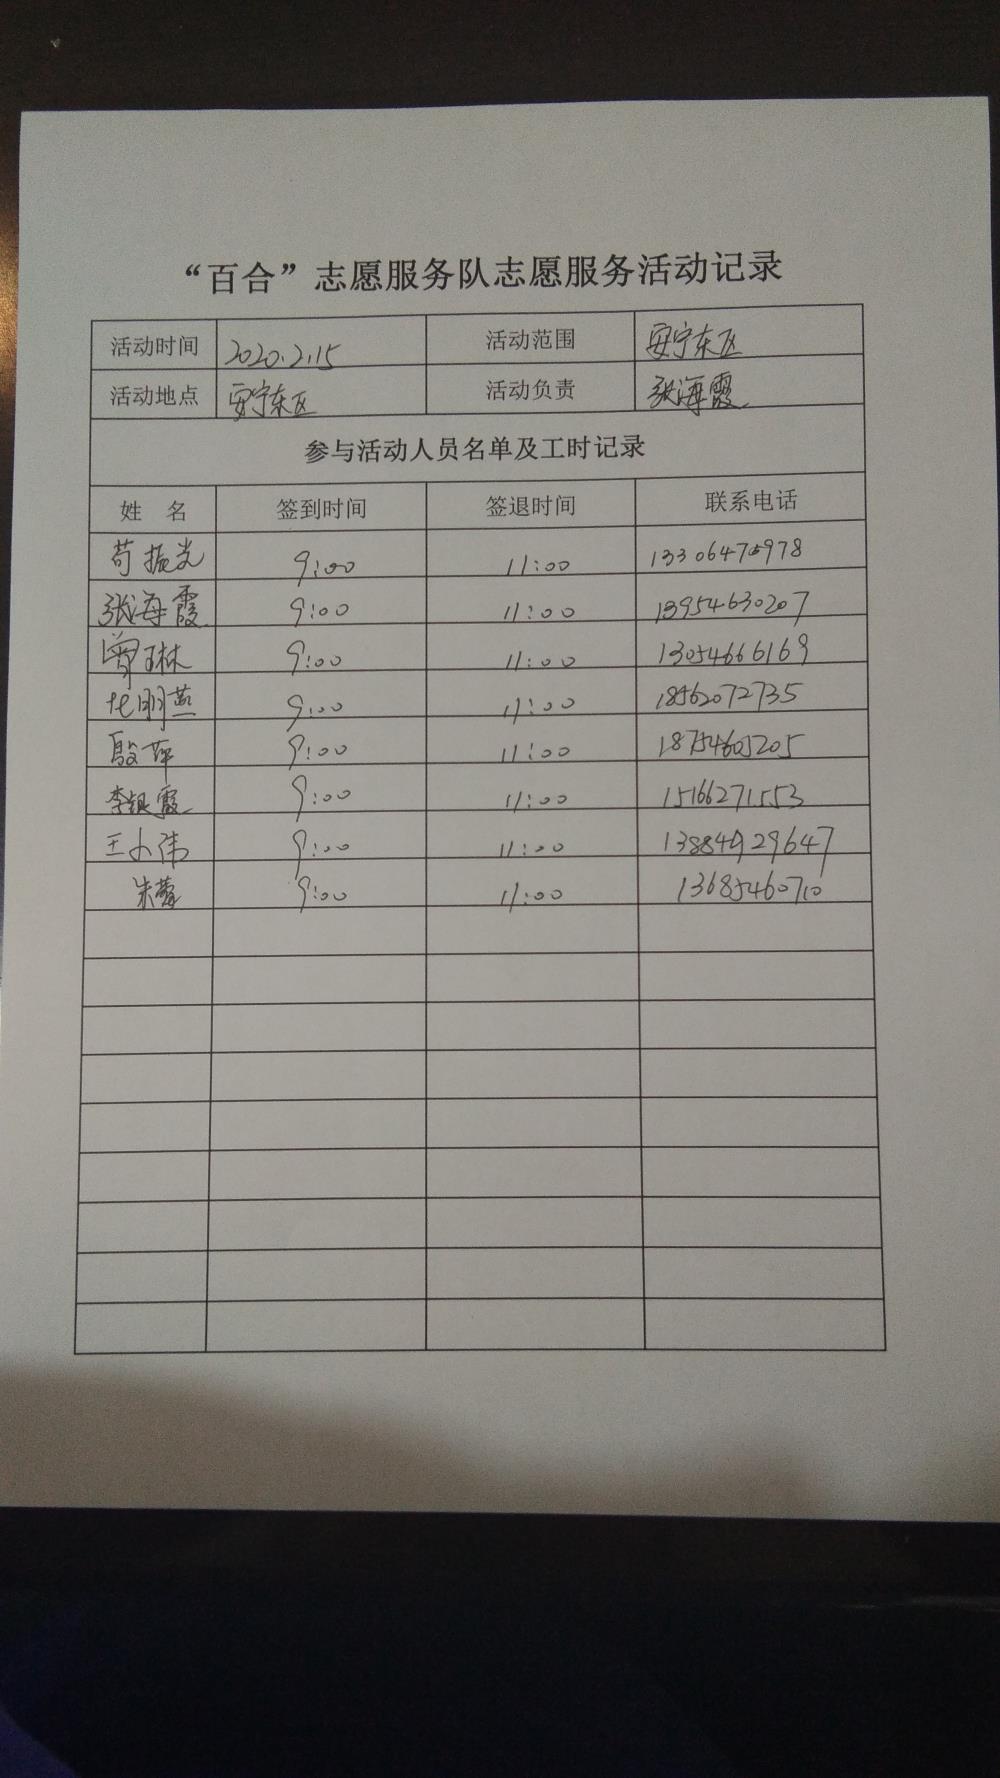 “百合”志愿服务队志愿服务活动记录
活动时间 2020.2.15 活动范围 安宁东区
活动地点 安宁东区 活动负责 张海霞
参与活动人员名单及工时记录
姓 名 签到时间 签退时间 联系电话
苟振光 9:00 11:00 13306475978
张海霞 9:00 11:00 13954630207
曾琳 9:00 11:00 13054666169
明燕 9:00 11:00 18562072735
殷萍 9:00 11:00 18754605205
李银霞 9:00 11:00 15166271553
王小伟 9:00 11:00 13884929647
朱蕾 9:00 11:00 13685460710